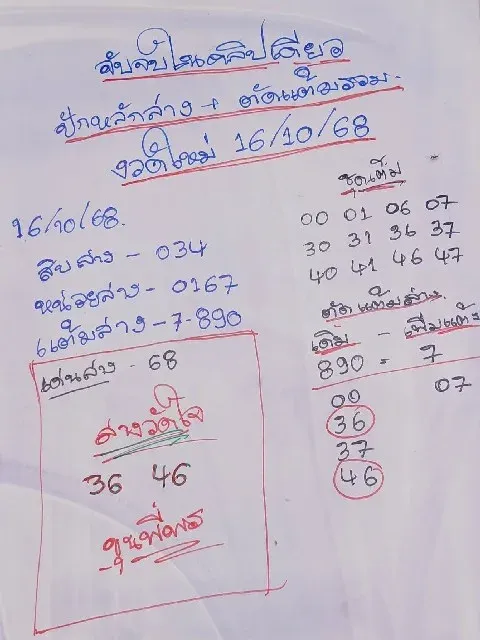 จับจบในคลิปเดียว
ปักหลักล่าง + ตัดแต้มรวม
งวดใหม่ 16/10/68
16/10/68.
สิบล่าง - 034
หน่วยล่าง - 0167
แต้มล่าง - 7-890
เด่นล่าง - 68
ล่างวัดใจ
36 46
ขุนพี่พร
ชุดเต็ม
00 01 06 07
30 31 36 37
40 41 46 47
ตัดแต้มล่าง
เดิม - เพิ่มแต้ม
890 = 7
00 07
36
37
46